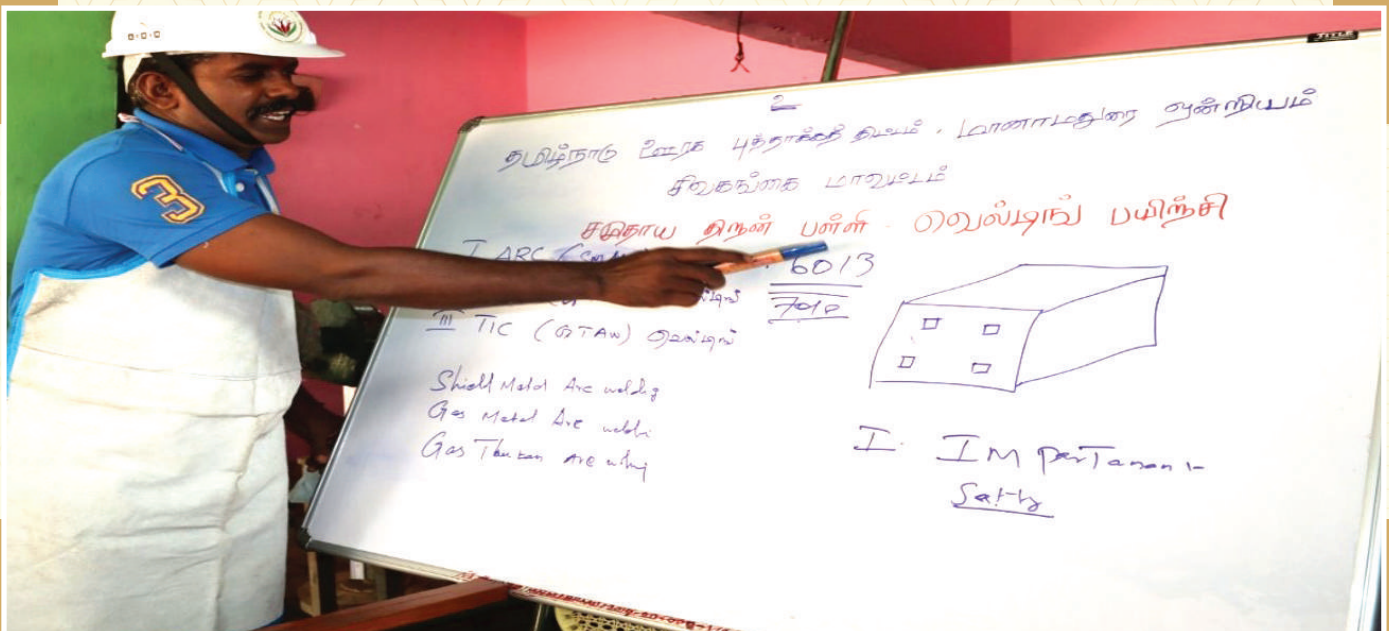 உ
தமிழ்நாடு ஊரக புத்தாக்கத் திட்டம். மானாமதுரை ஒன்றியம்
சிவகங்கை மாவட்டம்
சமுதாய திறன் பள்ளி - வெல்டிங் பயிற்சி
I ARC 6013
7010
III TIC (GTAW) வெல்டிங்
Shield Metal Arc welding
Gas Metal Arc weldi
Gas Arc
I. IMperTanan :-
3
TITLE